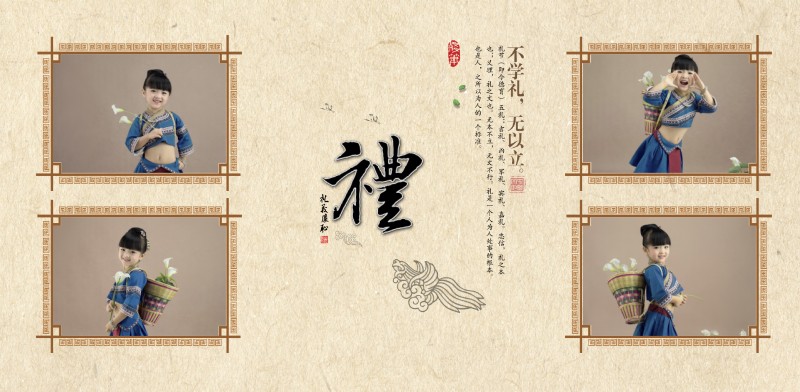 不学礼，无以立。
礼节（即今德育）五礼：吉礼、凶礼、军礼、宾礼、嘉礼。忠信，礼之本
也；义理，礼之文也。无本不立，无文不行。礼是一个人为人处事的根本。
也是人，之所以为人的一个标准。
禮
礼义廉耻